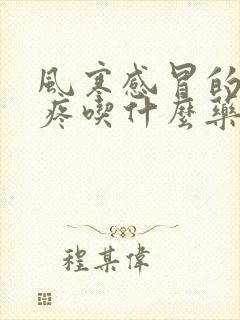 風寒感冒的
疼喫什麼藥
程某偉